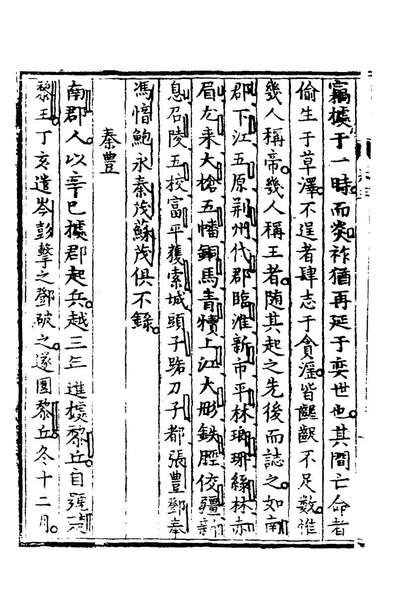 竊據于一時而炎祚猶再延于奕世也其間亡命者
偷生于草澤不逞者肆志于貪淫皆齷齪不足數惟
幾人稱帝幾人稱王者隨其起之先後而誌之如南
郡下江五原荆州代郡臨淮新市平林瑯琊綠林赤
眉尤来大槍五幡銅馬青犢上江大彤鉄脛佼彊新
息召陵五校富平獲索城頭子路刀子都張豊鄧奉
馮愔鮑永秦茂蘇茂俱不錄
秦豊
南郡人以辛巳據郡起兵越三年進據黎丘自號楚
黎王丁亥遣岑彭擊之鄧破之遂圍黎丘冬十二月